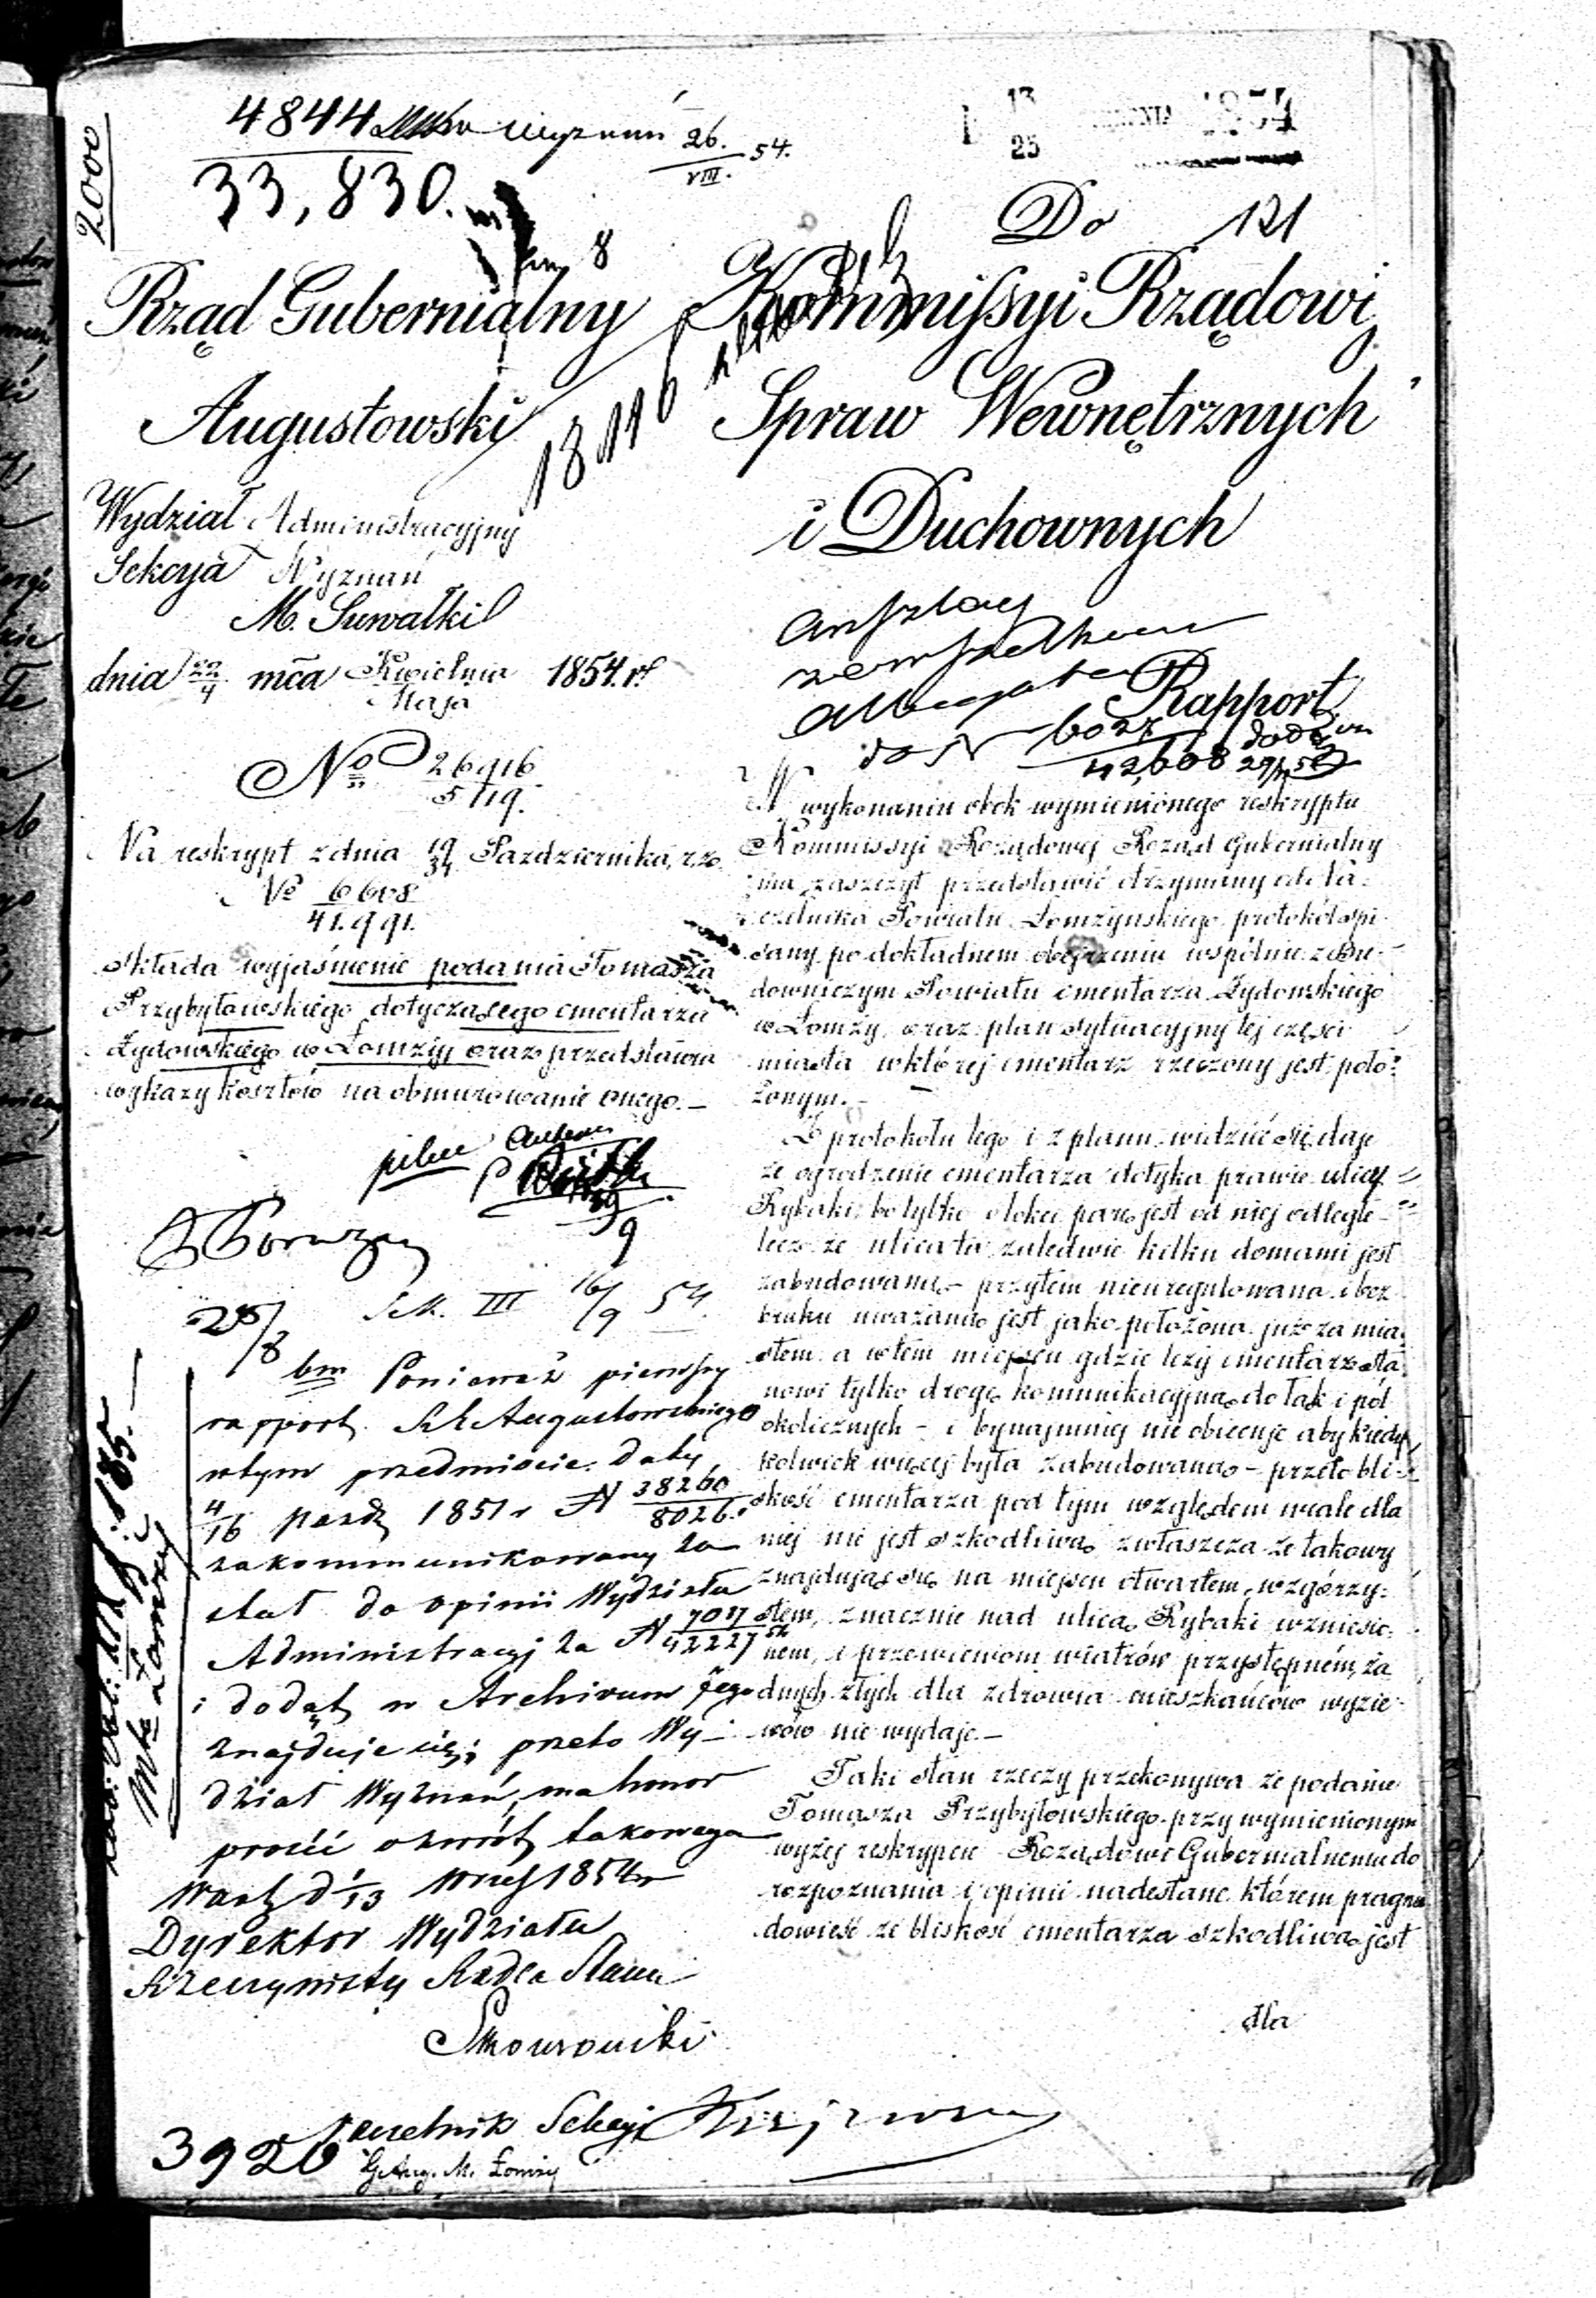 2000
4844 wyznań 26. VIII. 54.
33,830.
13 25 1854
Do 121
Rząd Gubernialny
Augustowski
Wydział Administracyjny
Sekcya Wyznań
M. Suwałki
dnia 22/4 mca Kwietnia/Maja 1854 r.
No 26916
5119.
Na reskrypt z dnia 19/31 Pazdziernika, r. z.
No 6608
41.991.
Składa wyjaśnienie podania Tomasza
Przybyłowskiego dotyczącego cmentarza
Żydowskiego w Łomży oraz przedstawia
wykazy kosztów na obmurowanie onego.—
pilne
28/8 Sek. III 16/9 54.
bm Ponieważ pierwszy
rapport Augustowskiego
w tym przedmiocie daty
4/16 pazdz 1851 r N 38260
8026.
zakommunikowany zo
stał do opinii Wydziału
Administracyj za N 7017
42227
i dodąt w Archivum jego
znajduje się; przeto Wy-
dział Wyznań, ma honor
prosić o zwrót takowego
Warsz d 1/13 Wrześ 1854 r
Dyrektor Wydziału
Rzeczywisty Radca Stanu
Skowroński
Naczelnik Sekcyi
3920
G. Aug. M. Łomży
Mta Łomży
Kommissyi Rządowéj
Spraw Wewnętrznych
i Duchownych
Rapport
do N 6027
42,608
W wykonaniu obok wymienionego reskryptu
Kommissyi Rządowej Rząd Gubernialny
ma zaszczyt przedstawić otrzymany od Na-
czelnika Powiatu Łomżyńskiego protokół spi-
sany po dokładnem obejrzeniu wspólnie z Bu-
downiczym Powiatu cmentarza Żydowskiego
w Łomży, oraz plan sytuacyjny tej części
miasta w której cmentarz rzeczony jest poło-
żonym.—
Z protokołu tego i z planu widzieć się daje
że ogrodzenie cmentarza dotyka prawie ulicy
Rybaki, bo tylko o łokci parę jest od niej odległe—
lecz że ulica ta zaledwie kilku domami jest
zabudowaną— przytem nieuregulowana i bez
bruku uważaną jest jako położona już za mia-
stem a w tem miejscu gdzie leży cmentarz sta-
nowi tylko drogę komunikacyjną do łąk i pól
okolicznych— i bynajmniej nie obiecuje aby kiedy-
kolwiek więcej była zabudowaną— przeto bli-
skość cmentarza pod tym względem wcale dla
niej nie jest szkodliwą, zwłaszcza że takowy
znajdując się na miejscu otwartem, wzgórzy-
stem, znacznie nad ulicą Rybaki wzniesio-
nem, i przewiewom wiatrów przystępném, ża
dnych złych dla zdrowia mieszkańców wyzie-
wów nie wydaje.—
Taki stan rzeczy przekonywa że podanie
Tomasza Przybyłowskiego przy wymienionym
wyżej reskrypcie Rządowi Gubernialnemu do
rozpoznania i opinii nadesłane, którem pragnie
dowieść że bliskość cmentarza szkodliwą jest
dla